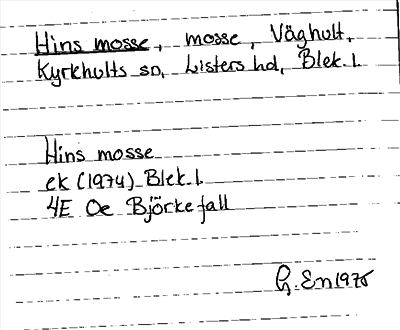 Hins mosse, mosse, Vãghult,
Kyrkhults sn, Listers hd, Blek.l.
Hins mosse
ek (1974) Blek.l.
4E Oe Björkefall
G. En 1975